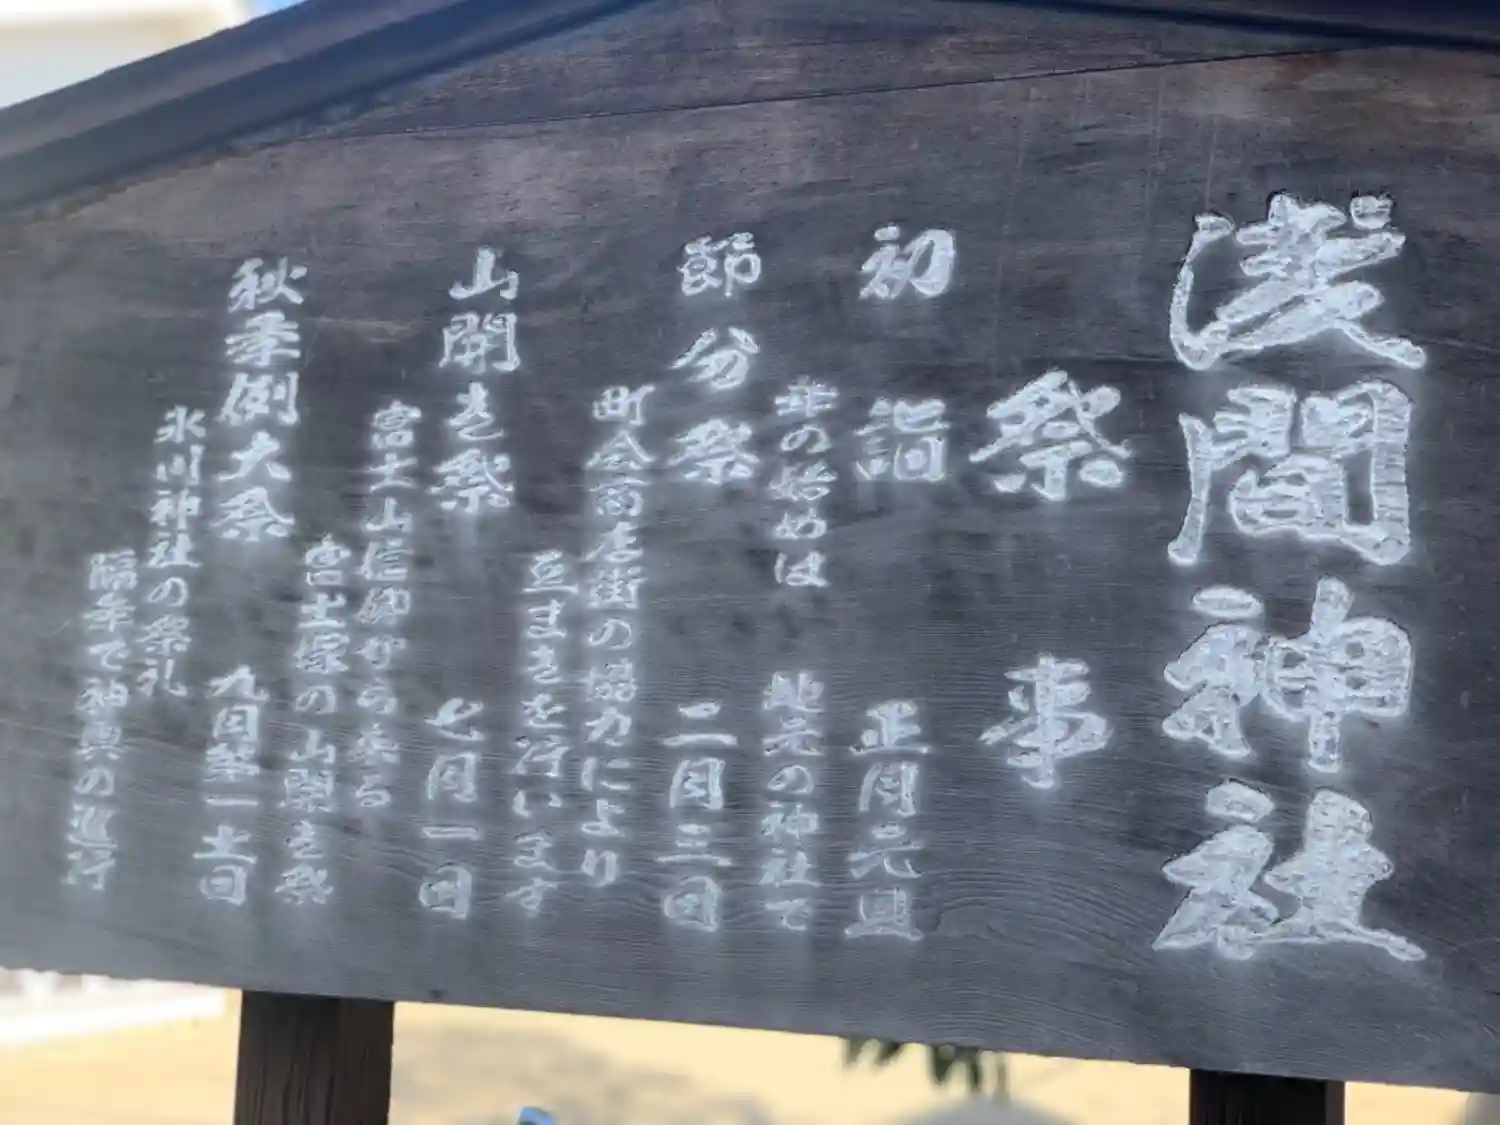 浅間神社
祭事
初詣 正月元旦
年の始めは 地元の神社で
節分祭 二月三日
町会商店街の協力により
豆まきを行います
山開き祭 七月一日
富士山信仰から来る
富士塚の山開き祭
秋季例大祭 九月第一土日
氷川神社の祭礼
隔年で神輿の巡行